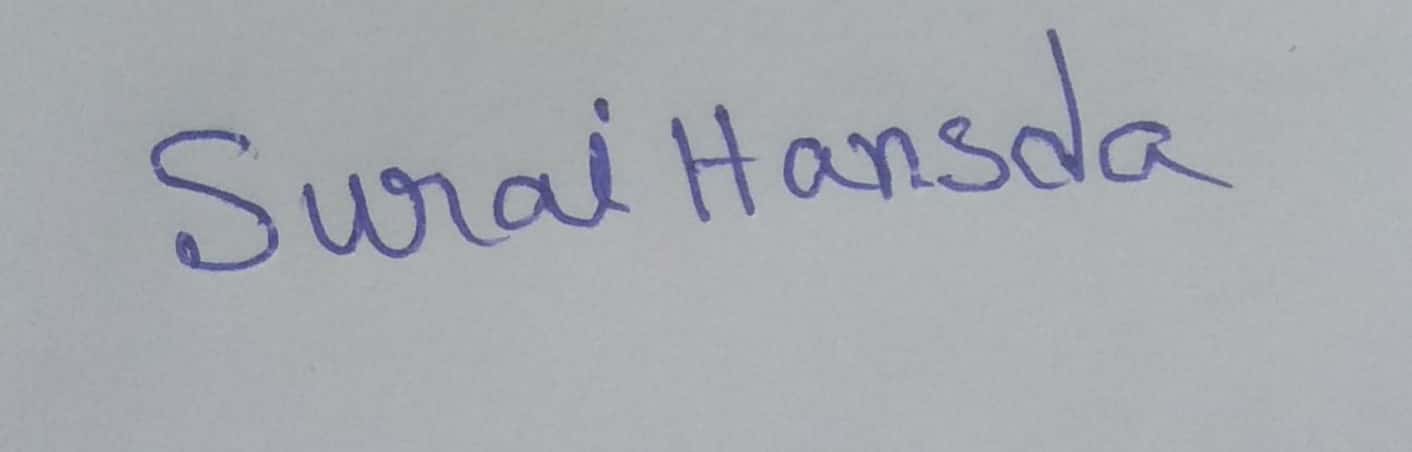 Surai Hansda